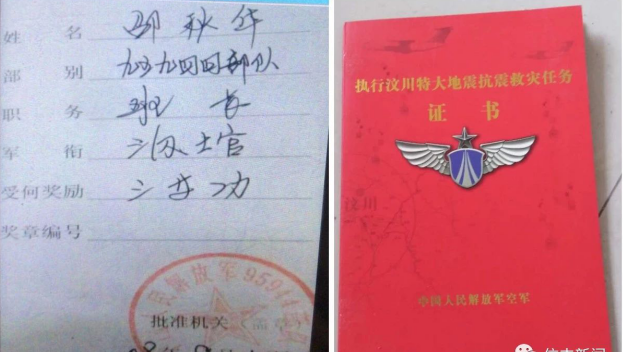 姓 名 秋华
部 别 九五九四四部队
职 务 班长
军 衔 三级士官
受何奖励 三等功
奖章编号
民解放军95944
批准机关（盖章）
执行汶川特大地震抗震救灾任务
证书
汶川
中国人民解放军空军
新闻